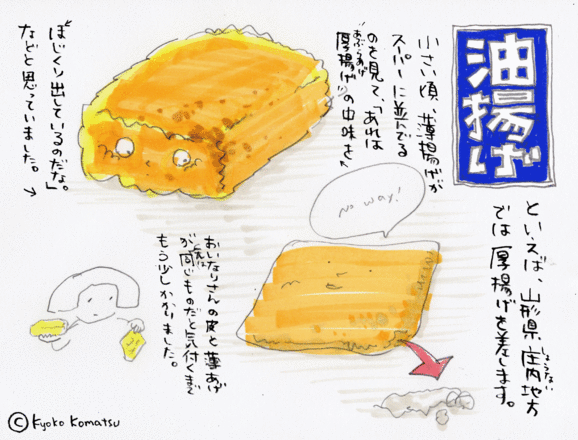 油揚げ
といえば、山形県庄内地方
しょうない
では厚揚げを差します。
小さい頃、薄揚げが
スーパーに並んでる
のを見て、「あれは
"あぶらあげ"
厚揚げの中味を
ほじくり出しているのだな。」
などと思っていました。→
No way!
おいなりさんの皮と薄あげ
が同じものだと気付くまで
もう少しかかりました。
© Kyoko Komatsu